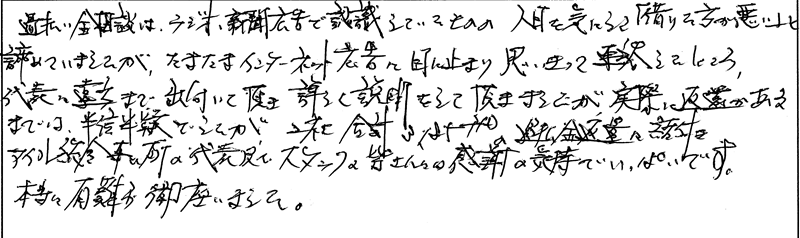 過払い金相談は、ラジオ、新聞広告で認識していたものの 人目を気にして借りた方が悪いと
諦めていましたが、たまたまインターネット広告に目に止まり 思いきって 連絡したところ、
代表に遠方まで出付いて頂き 詳しく説明をして頂きましたが 実際に返還がある
までは、半信半疑でしたが 二社 合計 の過払金返還に 成功
アイル 事務所の代表及びスタッフの皆さんへの感謝の気持でいっぱいです。
本当に有難う御座いました。